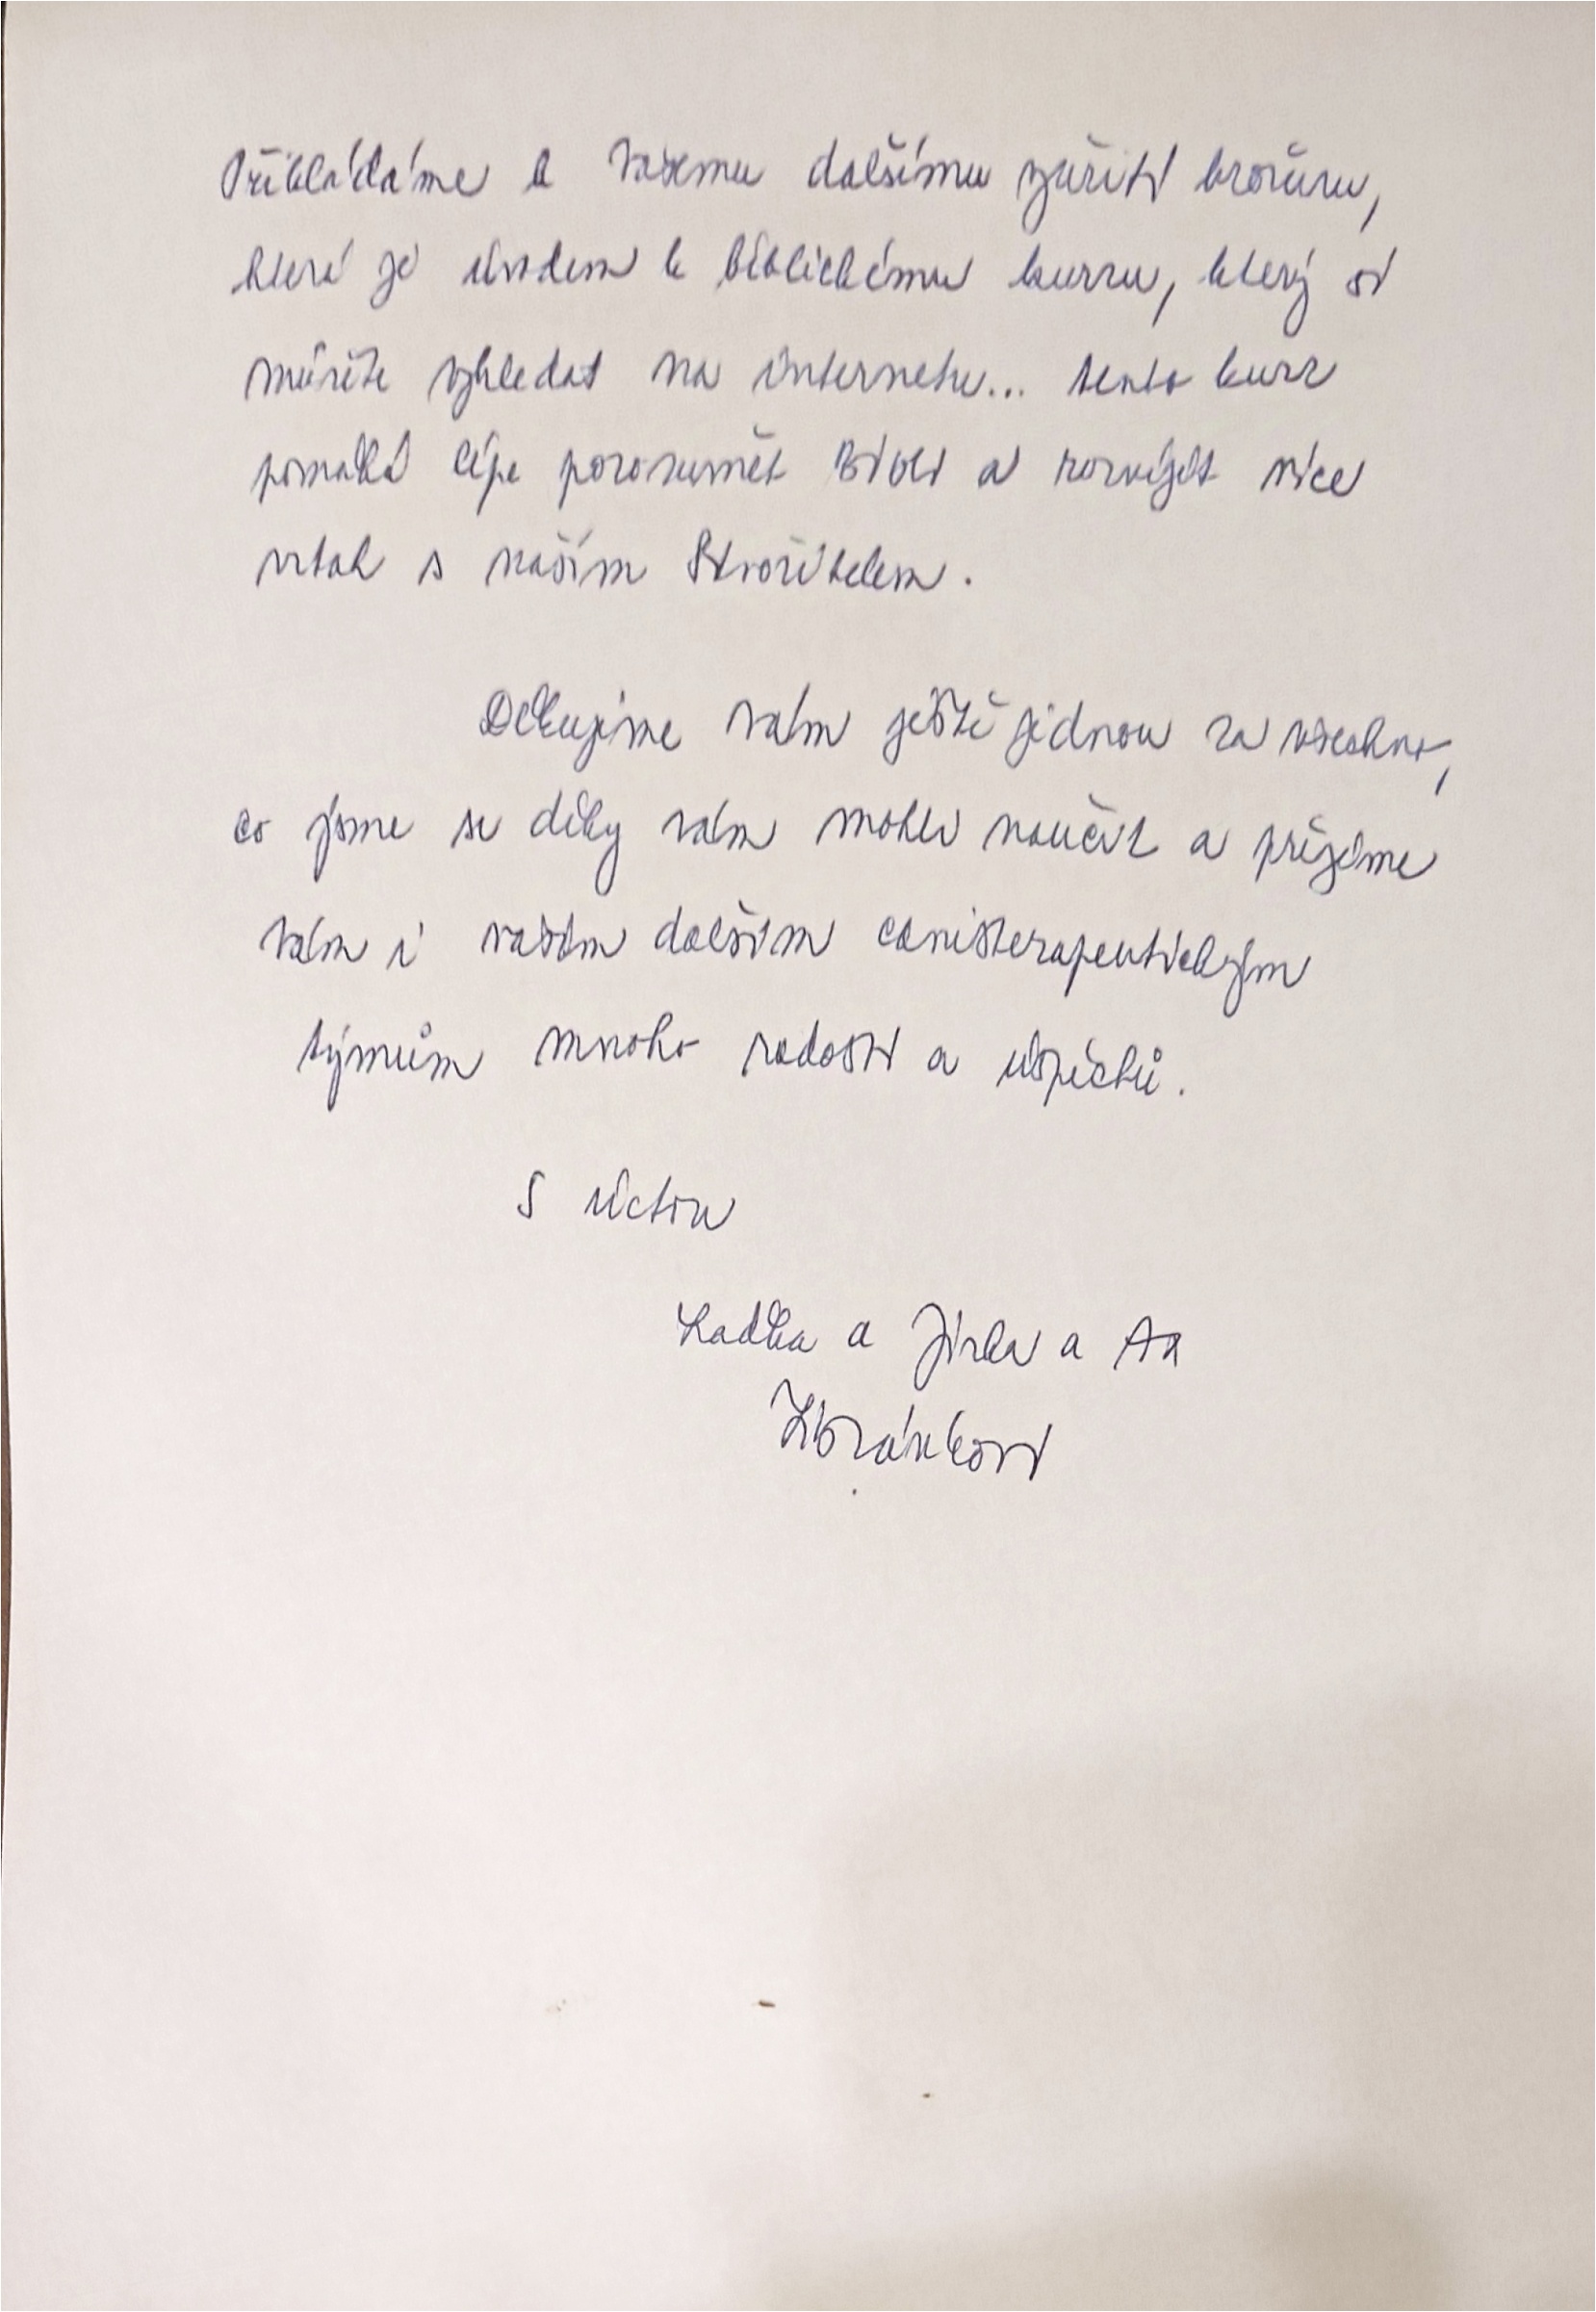 Přikládáme k Vašemu dalšímu využití brožuru,
která je úvodem k biblickému kurzu, který si
můžete vyhledat na internetu... tento kurz
pomáhá lépe porozumět Bibli a rozvíjet více
vztah s naším Stvořitelem.
Děkujeme Vám ještě jednou za všechno,
co jsme se díky vám mohli naučit a přejeme
Vám i vašim dalším canisterapeutickým
týmům mnoho radosti a úspěchů.
S úctou
Radka a Jirka a